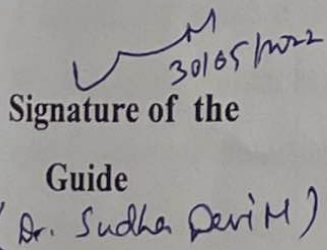 30/05/2022
Signature of the
Guide
(Dr. Sudha Devi M)